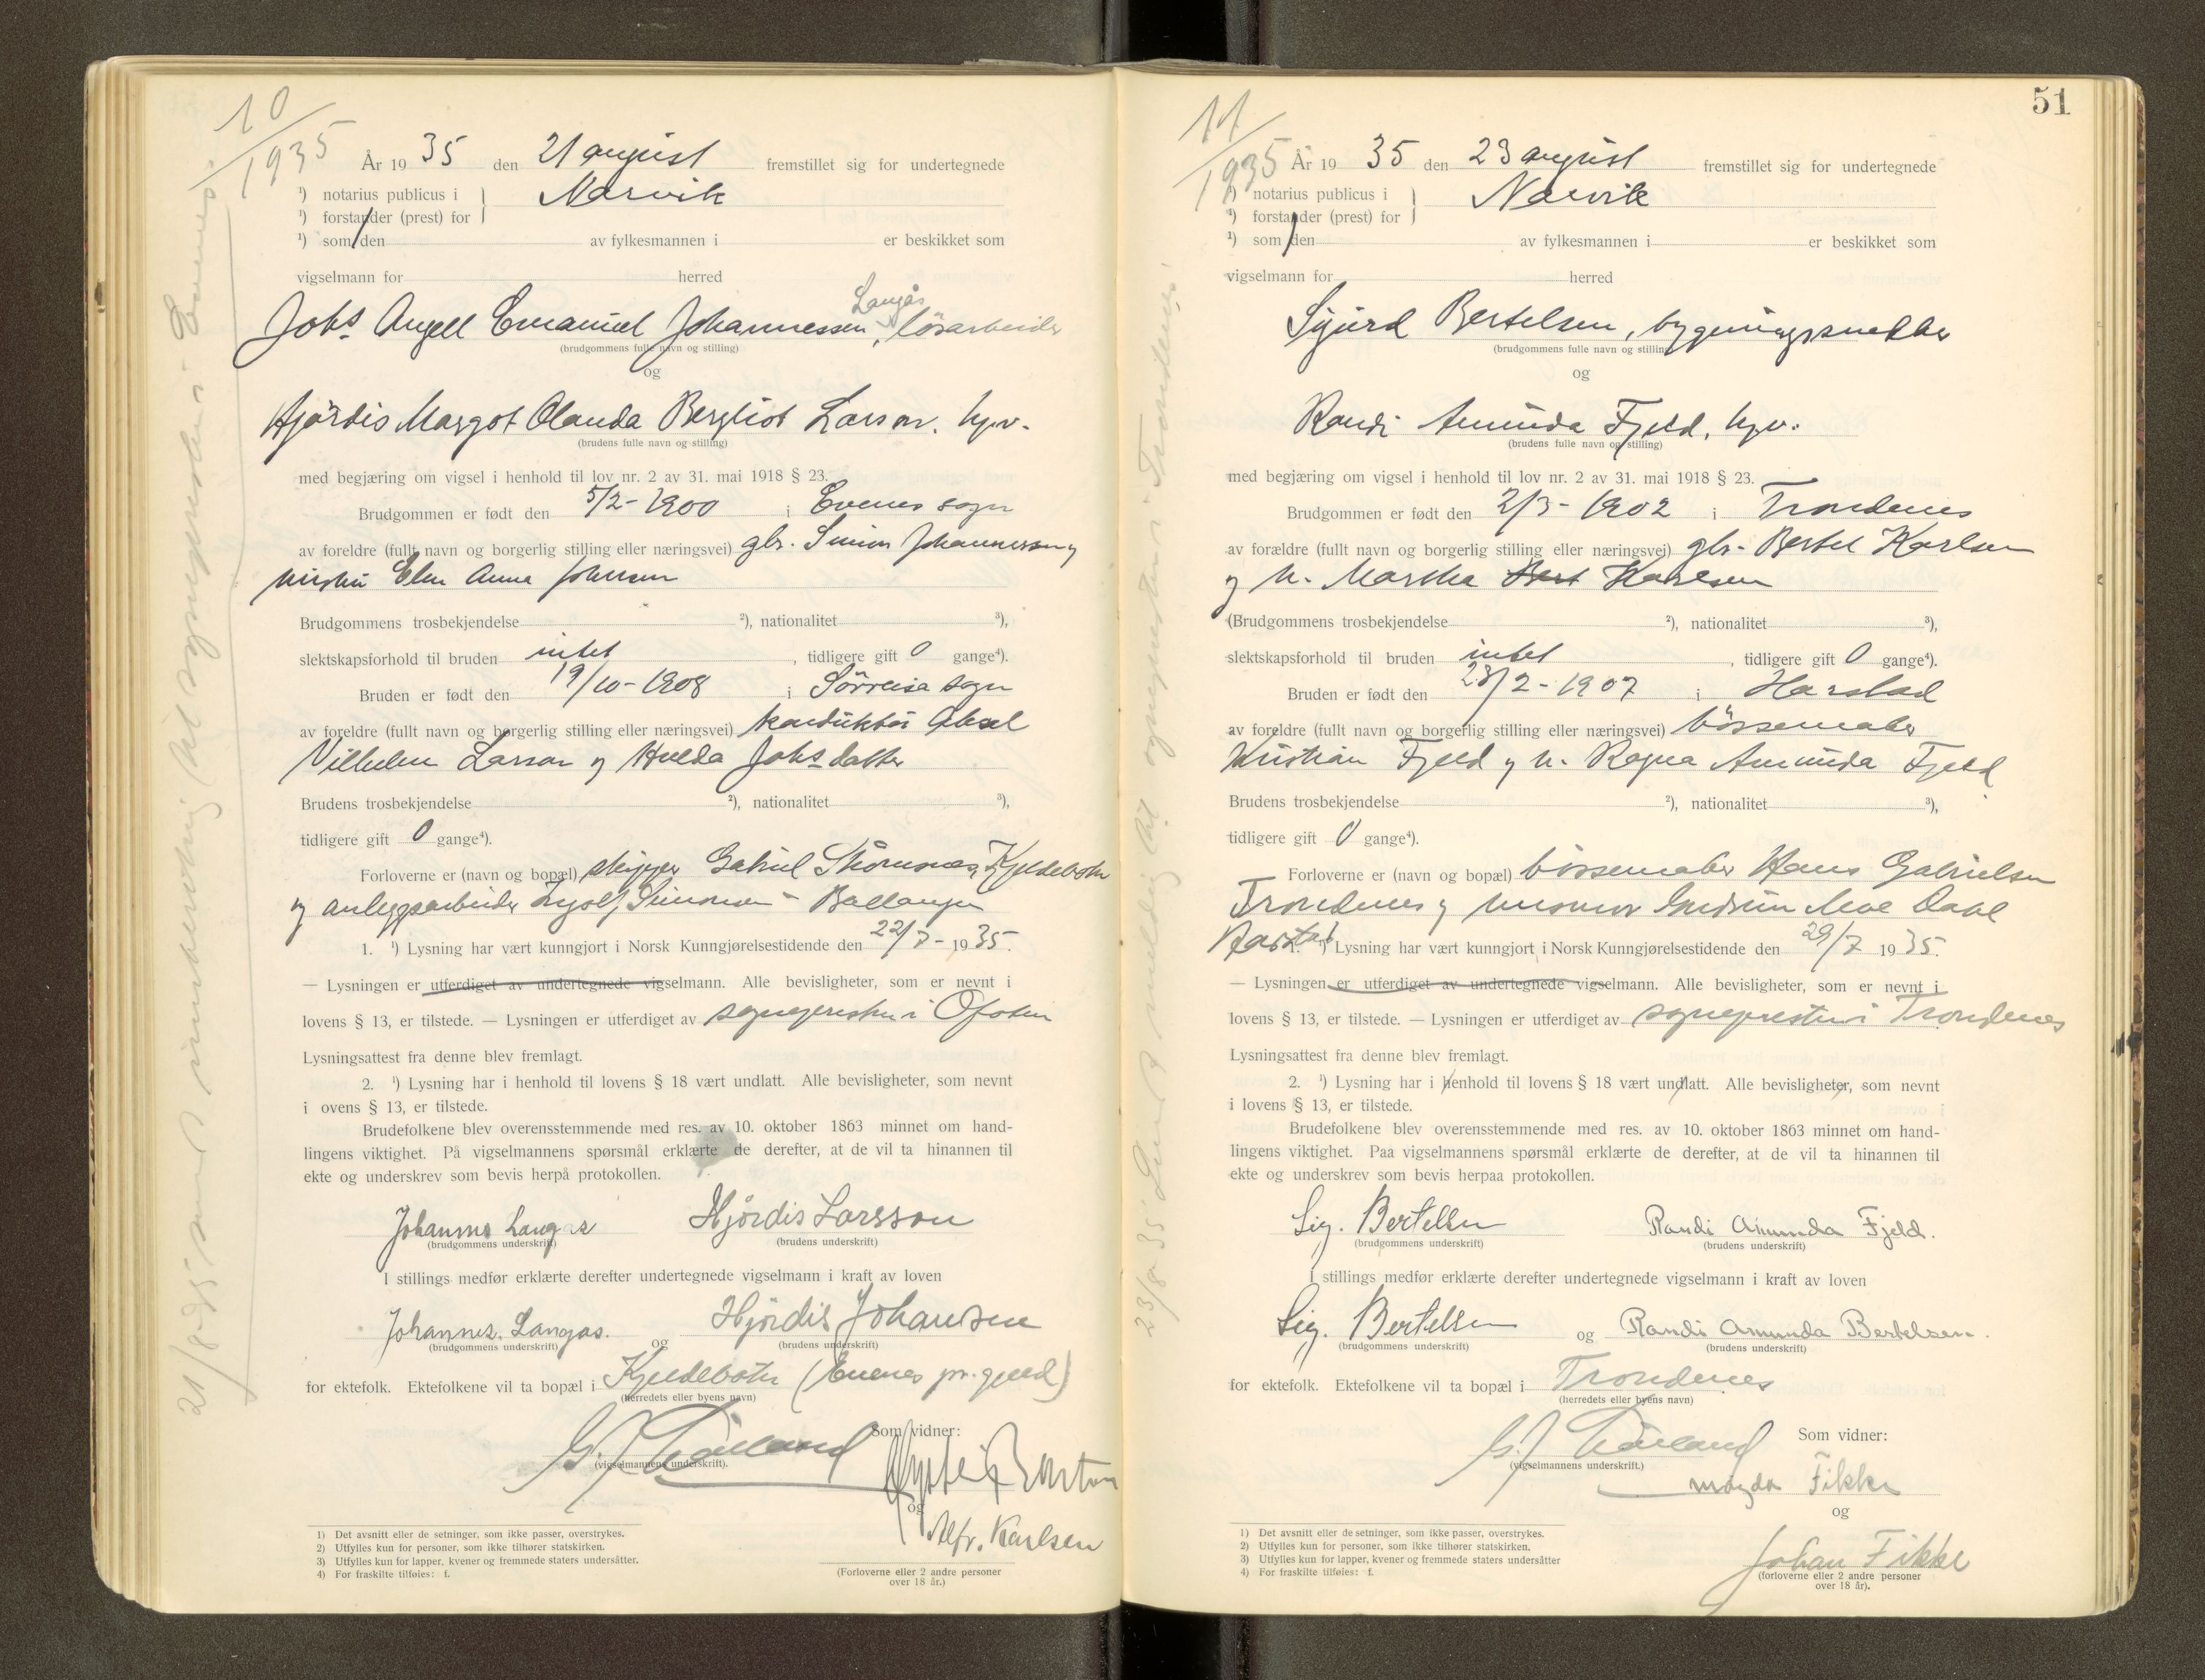 10
1935
År 1935 den 21 august fremstillet sig for undertegnede
¹) notarius publicus i } Narvik
¹) forstander (prest) for
¹) som den av fylkesmannen i er beskikket som
vigselmann for herred
Langås
Johs Angell Emanuel Johannessen, løsarbeider
(brudgommens fulle navn og stilling)
og
Hjördis Margot Olanda Bergliot Larson. hv.
(brudens fulle navn og stilling)
med begjæring om vigsel i henhold til lov nr. 2 av 31. mai 1918 § 23.
Brudgommen er født den 5/2-1900 i Evenes sogn
av foreldre (fullt navn og borgerlig stilling eller næringsvei) gbr. Simon Johannessen og
hustru Elen Anna Johnsen
Brudgommens trosbekjendelse ²), nationalitet ³),
slektskapsforhold til bruden intet, tidligere gift 0 gange⁴).
Bruden er født den 19/10-1908 i Sörreisa sogn
av foreldre (fullt navn og borgerlig stilling eller næringsvei) konduktör Aksel
Vilhelm Larson og Hulda Johsdatter
Brudens trosbekjendelse ²), nationalitet ³),
tidligere gift 0 gange⁴).
Forloverne er (navn og bopæl) skipper Gabriel Skömnes, Kjeldebotn
og anleggsarbeider Ingolf Simonsen - Ballangen
1. ¹) Lysning har vært kunngjort i Norsk Kunngjørelsestidende den 22/7-1935.
— Lysningen er utferdiget av undertegnede vigselmann. Alle bevisligheter, som er nevnt i
lovens § 13, er tilstede. — Lysningen er utferdiget av sogneprestn i Ofoten
Lysningsattest fra denne blev fremlagt.
2. ¹) Lysning har i henhold til lovens § 18 vært undlatt. Alle bevisligheter, som nevnt
i ovens § 13, er tilstede.
Brudefolkene blev overensstemmende med res. av 10. oktober 1863 minnet om hand-
lingens viktighet. På vigselmannens spørsmål erklærte de derefter, at de vil ta hinannen til
ekte og underskrev som bevis herpå protokollen.
Johannes Langås Hjördis Larsson
(brudgommens underskrift) (brudens underskrift)
I stillings medfør erklærte derefter undertegnede vigselmann i kraft av loven
Johannes. Langas. og Hjördis Johansen
(brudgommens underskrift) (brudens underskrift)
for ektefolk. Ektefolkene vil ta bopæl i Kjeldebotn (Evenes pr.gjeld)
(herredets eller byens navn)
Som vidner:
(vigselmannens underskrift).
og
Alfr. Karlsen
1) Det avsnitt eller de setninger, som ikke passer, overstrykes.
2) Utfylles kun for personer, som ikke tilhører statskirken.
3) Utfylles kun for lapper, kvener og fremmede staters undersåtter.
4) For fraskilte tilføies: f.
(Forloverne eller 2 andre personer
over 18 år.)
51
11
1935
År 1935 den 23 august fremstillet sig for undertegnede
¹) notarius publicus i } Narvik
¹) forstander (prest) for
¹) som den av fylkesmannen i er beskikket som
vigselmann for herred
Sigurd Bertelsen, bygningssnekker
(brudgommens fulle navn og stilling)
og
Randi Amunda Fjeld, hv.
(brudens fulle navn og stilling)
med begjæring om vigsel i henhold til lov nr. 2 av 31. mai 1918 § 23.
Brudgommen er født den 2/3-1902 i Trondenes
av forældre (fullt navn og borgerlig stilling eller næringsvei) gbr. Bertel Karlsen
og h. Martha Bert Karlsen
(Brudgommens trosbekjendelse ²), nationalitet ³),
slektskapsforhold til bruden intet, tidligere gift 0 gange⁴).
Bruden er født den 28/2-1907 i Harstad
av foreldre (fullt navn og borgerlig stilling eller næringsvei) börsemaker
Kristian Fjeld og h. Ragna Amunda Fjeld
Brudens trosbekjendelse ²), nationalitet ³),
tidligere gift 0 gange⁴).
Forloverne er (navn og bopæl) börsemaker Hans Gabrielsen
Trondenes og Gudrun Moe Dahl
Harstad
1. ¹) Lysning har vært kunngjort i Norsk Kunngjørelsestidende den 29/7 1935.
— Lysningen er utferdiget av undertegnede vigselmann. Alle bevisligheter, som er nevnt i
lovens § 13, er tilstede. — Lysningen er utferdiget av sogneprestn i Trondenes
Lysningsattest fra denne blev fremlagt.
2. ¹) Lysning har i henhold til lovens § 18 vært undlatt. Alle bevisligheter, som nevnt
i lovens § 13, er tilstede.
Brudefolkene blev overensstemmende med res. av 10. oktober 1863 minnet om hand-
lingens viktighet. Paa vigselmannens spørsmål erklærte de derefter, at de vil ta hinannen til
ekte og underskrev som bevis herpaa protokollen.
Sig. Bertelsen Randi Amunda Fjeld.
(brudgommens underskrift) (brudens underskrift)
I stillings medfør erklærte derefter undertegnede vigselmann i kraft av loven
Sig. Bertelsen og Randi Amunda Bertelsen.
(brudgommens underskrift) (brudens underskrift)
for ektefolk. Ektefolkene vil ta bopæl i Trondenes
(herredets eller byens navn)
Som vidner:
(vigselmannens underskrift.)
Magda Fikke
og
Johan Fikke
1) Det avsnitt eller de setninger, som ikke passer, overstrykes.
2) Utfylles kun for personer, som ikke tilhører statskirken.
3) Utfylles kun for lapper, kvener og fremmede staters undersåtter
4) For fraskilte tilføies: f.
(forloverne eller 2 andre personer
over 18 år).
21/8-35 sendt innberetning til sognepresten i Evenes
23/8-35 Sendt melding til sognepresten i Trondenes